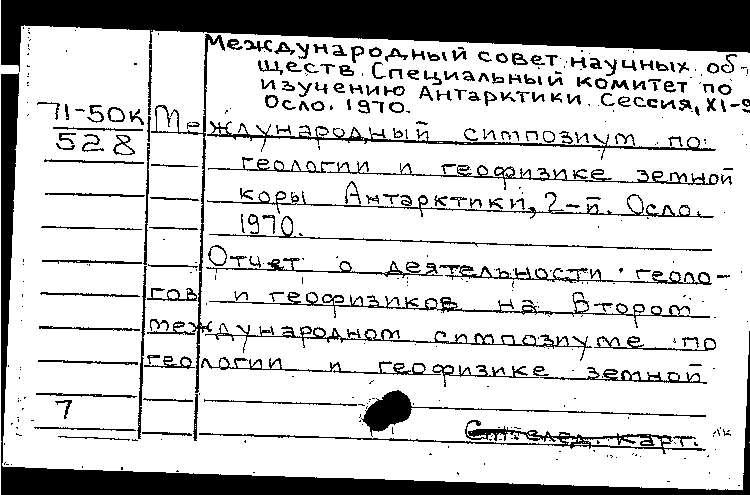 Международный совет научных об-
ществ. Специальный комитет по
изучению Антарктики. Сессия, XI-я
Осло. 1970.
71-50к
528
Международный симпозиум по
геологии и геофизике земной
коры Антарктики, 2-й. Осло.
1970.
Отчет о деятельности геоло-
гов и геофизиков на Втором
международном симпозиуме по
геологии и геофизике земной
7
См. след. карт.